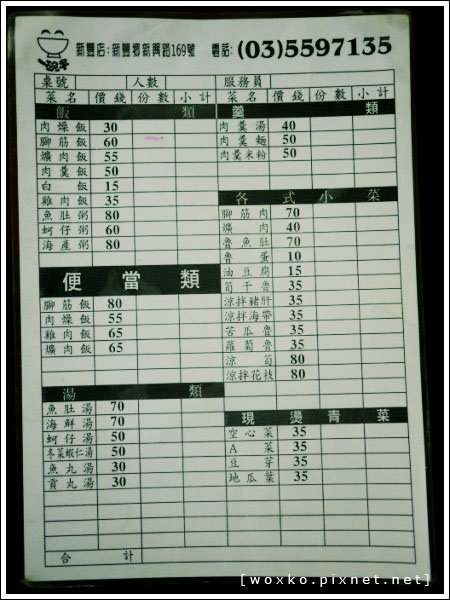 一碗子
新豐店:新豐鄉新興路169號 電話:(03)5597135
桌號 人數 服務員
菜名 價錢 份數 小計
飯類
肉燥飯 30
腳筋飯 60
爌肉飯 55
肉羹飯 50
白飯 15
雞肉飯 35
魚肚粥 80
蚵仔粥 60
海產粥 80
便當類
腳筋飯 80
肉燥飯 55
雞肉飯 65
爌肉飯 65
湯類
魚肚湯 70
海鮮湯 70
蚵仔湯 50
冬菜蝦仁湯 50
魚丸湯 30
貢丸湯 30
合計
菜名 價錢 份數 小計
羹類
肉羹湯 40
肉羹麵 50
肉羹米粉 50
各式小菜
腳筋肉 70
爌肉 40
魯魚肚 70
魯蛋 10
油豆腐 15
筍干魯 35
涼拌豬肝 35
涼拌海帶 35
苦瓜魯 35
蘿蔔魯 35
涼筍 80
涼拌花枝 80
現燙青菜
空心菜 35
A菜 35
豆芽 35
地瓜葉 35
[woxko.pixnet.net]